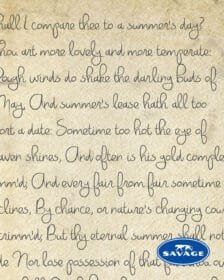 hall I compare thee to a summer's day?
hou art more lovely and more temperate:
ough winds do shake the darling buds of
May, And summer's lease hath all too
ort a date: Sometime too hot the eye of
aven shines, And often is his gold comple
mm'd; And every fair from fair sometime
clines, By chance, or nature's changing cou
trimm'd; But thy eternal summer shall not
de Nor lose possession of that fa
SAVAGE